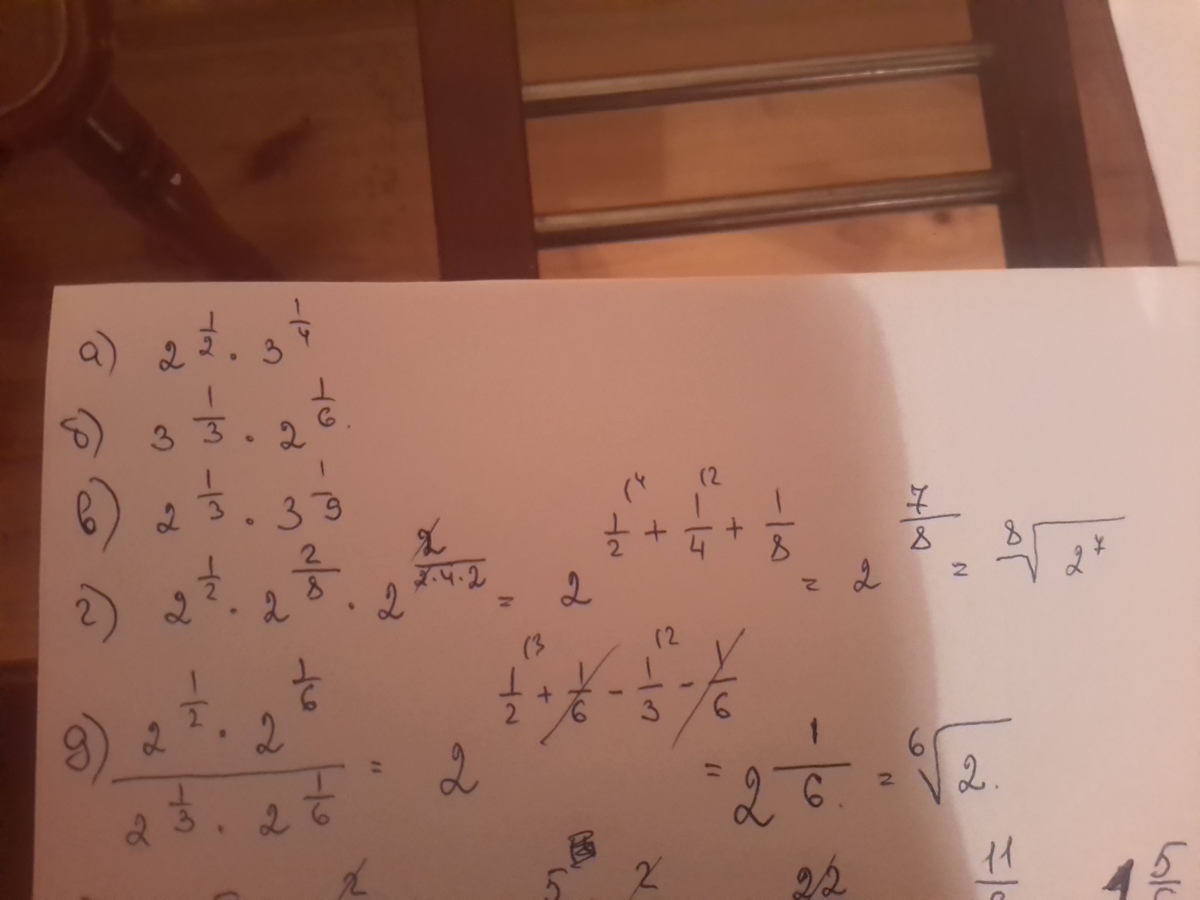 а) 2^{1/2} · 3^{1/4}
б) 3^{1/3} · 2^{1/6}.
в) 2^{1/3} · 3^{1/9}
г) 2^{1/2} · 2^{2/8} · 2^{2/(2·4·2)} = 2^{1/2 (4 + 1/4 (2 + 1/8} = 2^{7/8} = ⁸√2⁷
д) (2^{1/2} · 2^{1/6}) / (2^{1/3} · 2^{1/6}) = 2^{1/2 (3 + 1/6 - 1/3 (2 - 1/6} = 2^{1/6.} = ⁶√2.